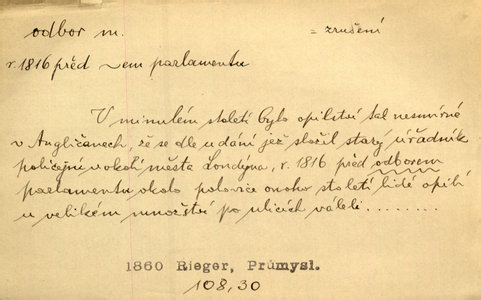 odbor m. = zrušení
r. 1816 před -em parlamentu
V minulém století bylo opilství tak nesmírné
v Angličanech, že se dle udání jež složil starý úřadník
policejní v okolí města Londýna, r. 1816 před odborem
parlamentu okolo polovice onoho století lidé opilí
u velikém množství po ulicích váleli........
1860 Rieger, Průmysl.
108,30